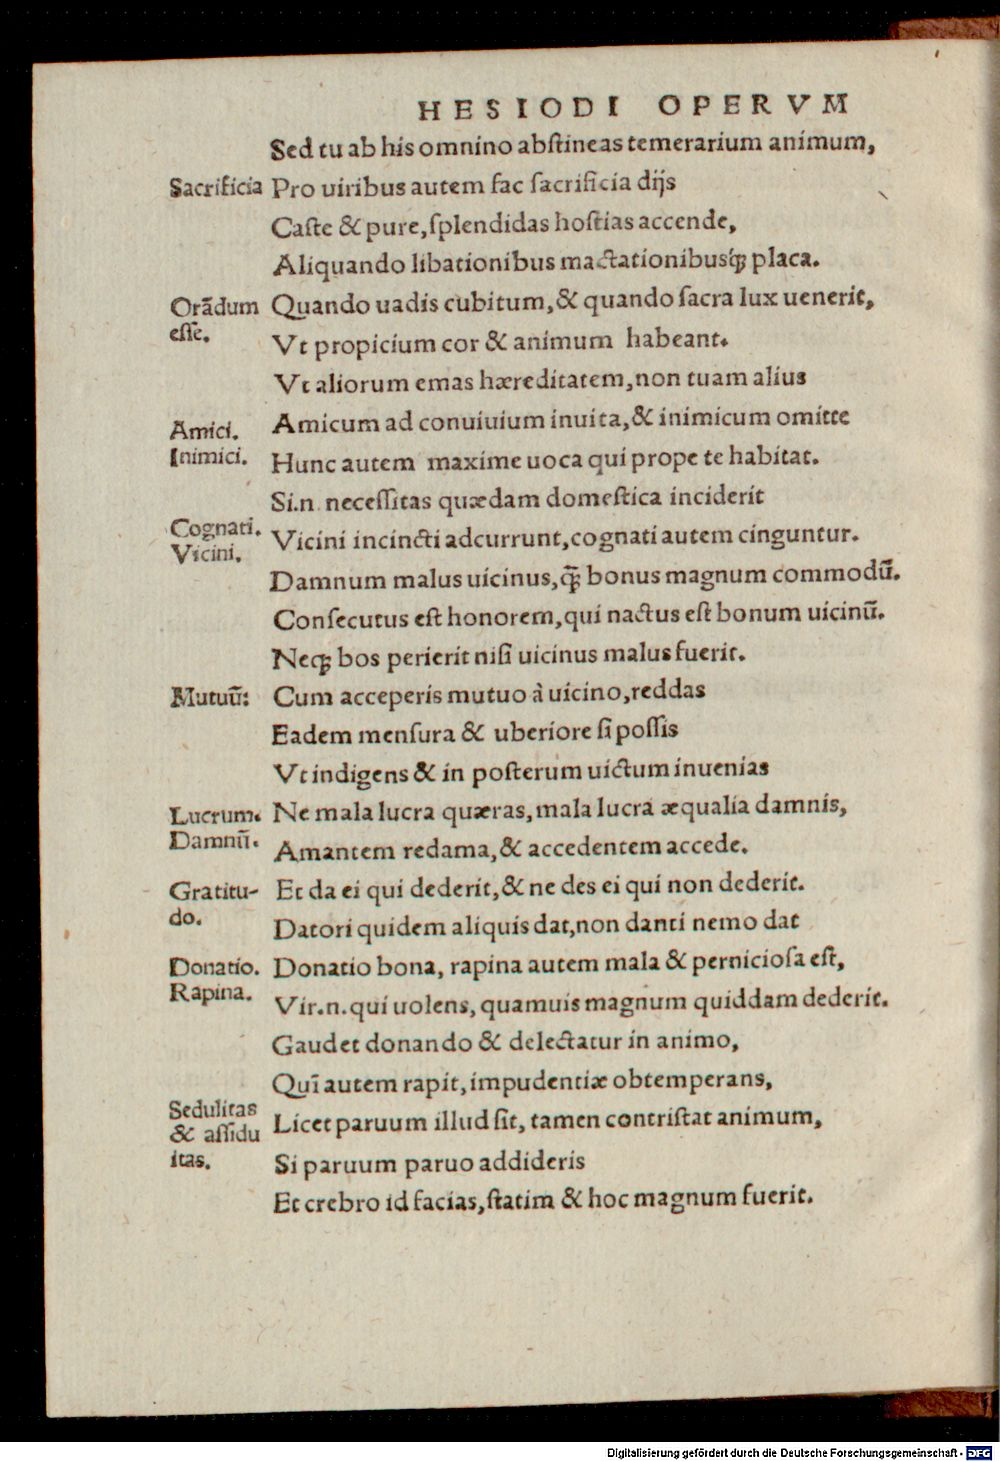 HESIODI OPERVM
Sed tu ab his omnino abstineas temerarium animum,
Sacrificia
Pro uiribus autem fac sacrificia dijs
Caste & pure, splendidas hostias accende,
Aliquando libationibus mactationibusq́; placa.
Orãdum
esse.
Quando uadis cubitum, & quando sacra lux uenerit,
Vt propicium cor & animum habeant.
Vt aliorum emas hæreditatem, non tuam alius
Amici.
Inimici.
Amicum ad conuiuium inuita, & inimicum omitte
Hunc autem maxime uoca qui prope te habitat.
Si.n. necessitas quædam domestica inciderit
Cognati.
Vicini.
Vicini incincti adcurrunt, cognati autem cinguntur.
Damnum malus uicinus, q̃; bonus magnum commodũ.
Consecutus est honorem, qui nactus est bonum uicinũ.
Neq; bos perierit nisi uicinus malus fuerit.
Mutuũ:
Cum acceperis mutuo à uicino, reddas
Eadem mensura & uberiore si possis
Vt indigens & in posterum uictum inuenias
Lucrum.
Damnũ.
Ne mala lucra quæras, mala lucra æqualia damnis,
Amantem redama, & accedentem accede.
Gratitu-
do.
Et da ei qui dederit, & ne des ei qui non dederit.
Datori quidem aliquis dat, non danti nemo dat
Donatio.
Rapina.
Donatio bona, rapina autem mala & perniciosa est,
Vir.n. qui uolens, quamuis magnum quiddam dederit.
Gaudet donando & delectatur in animo,
Quī autem rapit, impudentiæ obtemperans,
Sedulitas
& assidu
itas.
Licet paruum illud sit, tamen contristat animum,
Si paruum paruo addideris
Et crebro id facias, statim & hoc magnum fuerit.
Digitalisierung gefördert durch die Deutsche Forschungsgemeinschaft - DFG